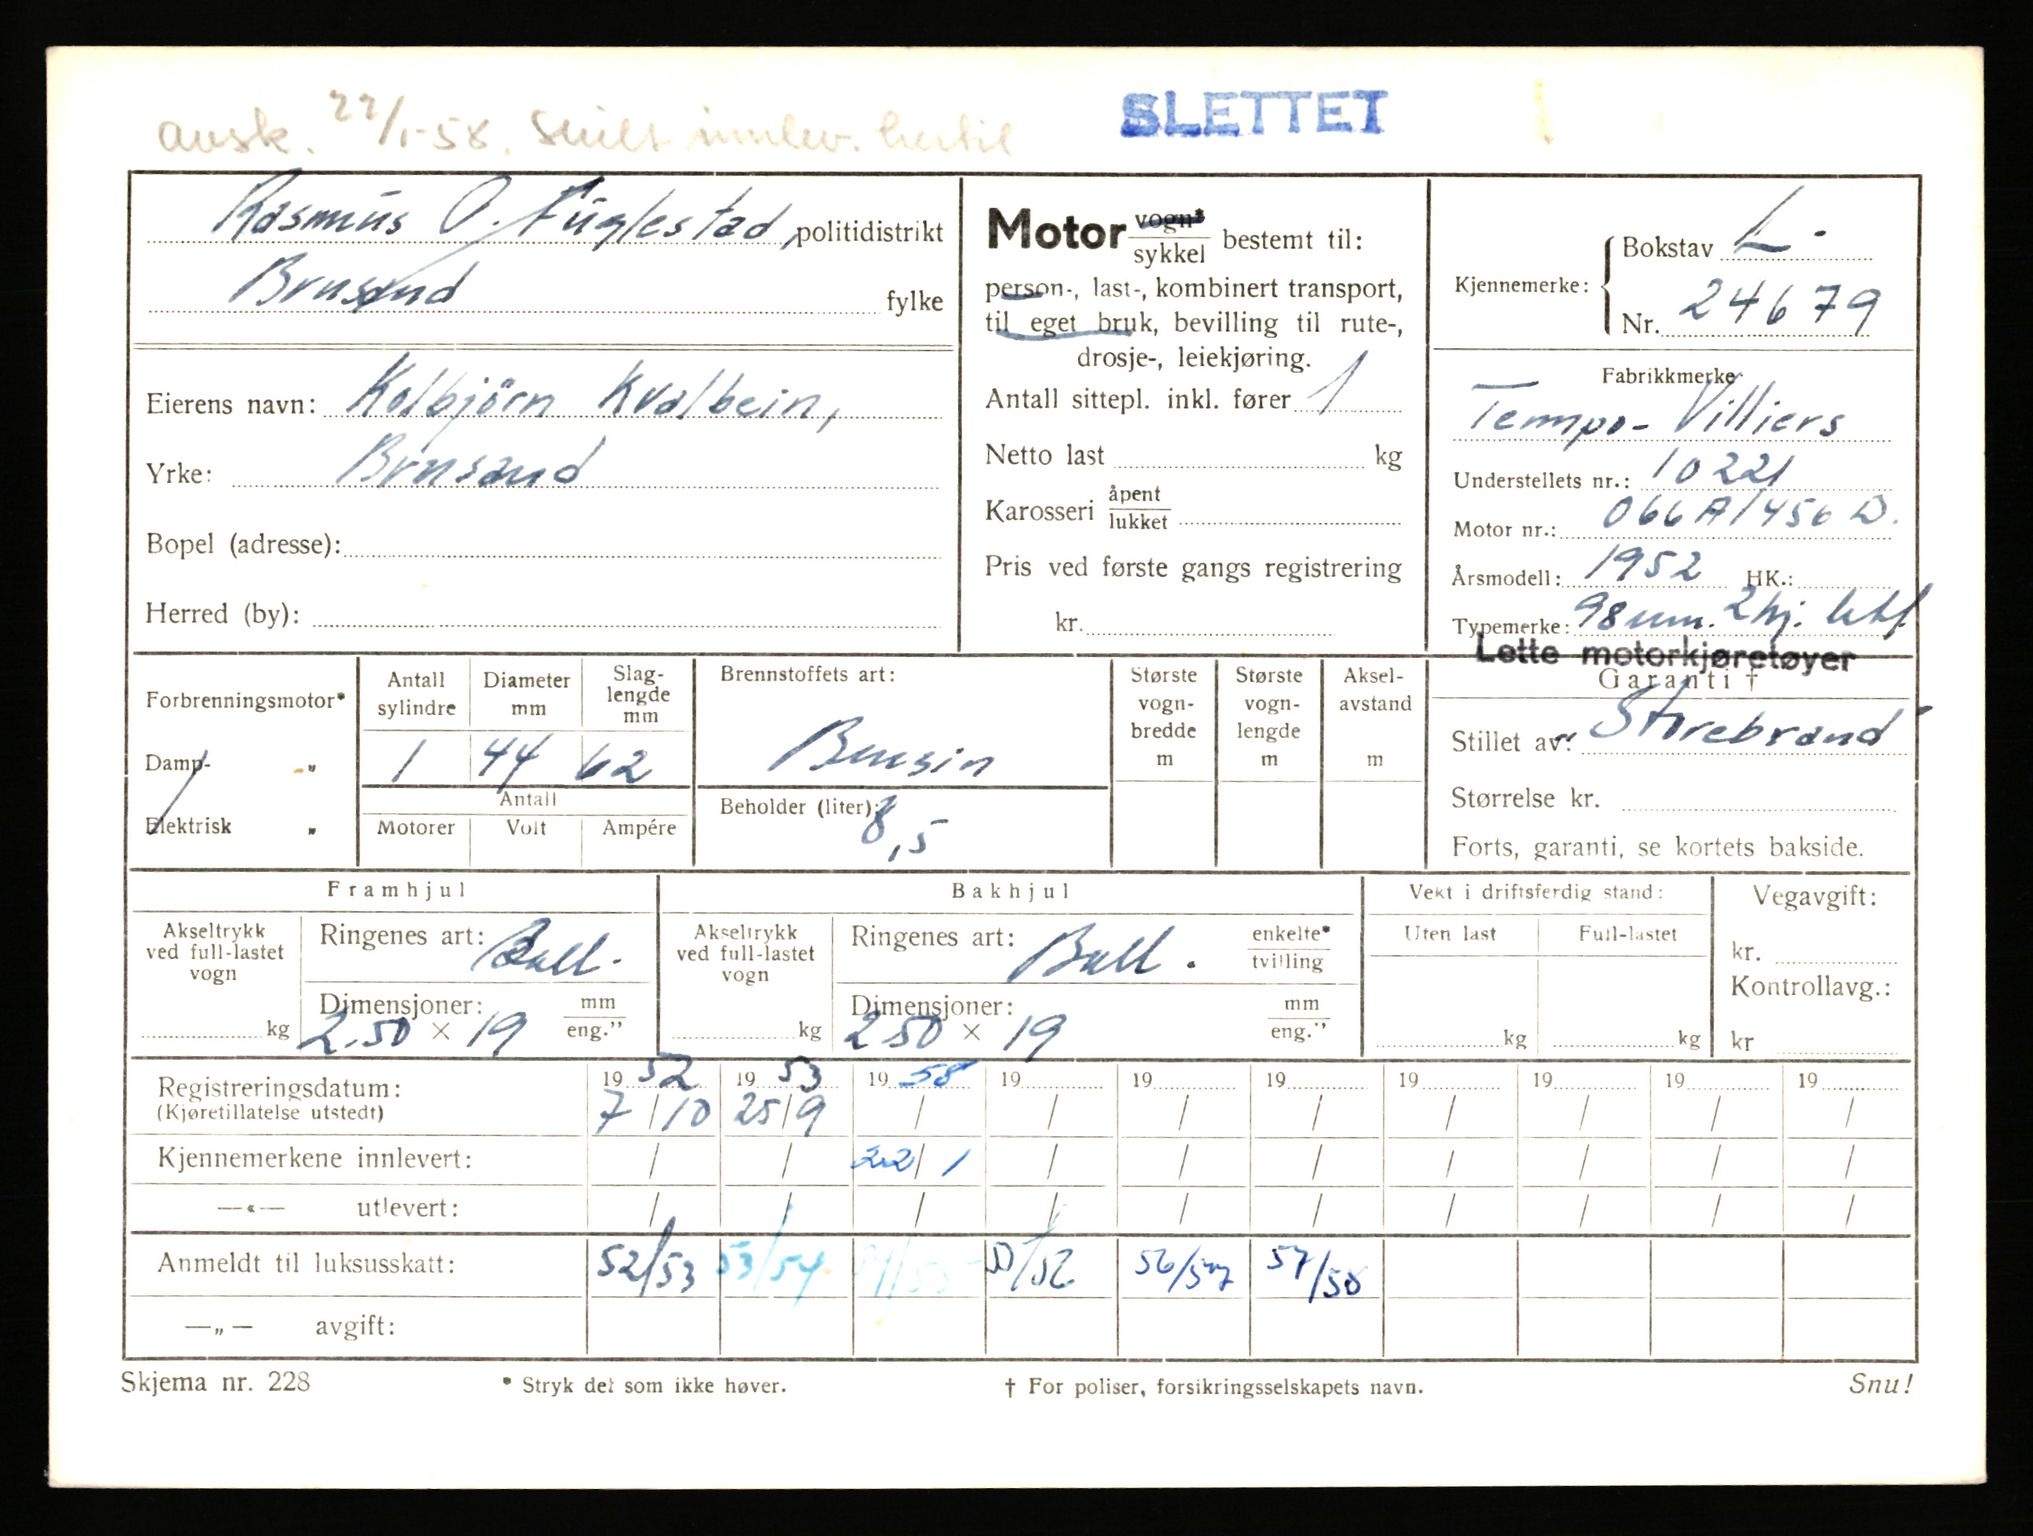 avsk. 22/1-58. Skilt innlev. hertil
SLETTET
Rasmus O. Fuglestad, politidistrikt
Brusand fylke
Eierens navn: Kolbjörn Kvalbein,
Yrke: Brusand
Bopel (adresse):
Herred (by):
Motor vogn* / sykkel bestemt til:
person-, last-, kombinert transport,
til eget bruk, bevilling til rute-,
drosje-, leiekjøring.
Antall sittepl. inkl. fører 1
Netto last kg
Karosseri åpent / lukket
Pris ved første gangs registrering
kr.
Kjennemerke: { Bokstav L-
Nr. 24679
Fabrikkmerke
Tempo-Villiers
Understellets nr.: 10221
Motor nr.: 066A/456 D.
Årsmodell: 1952 HK.:
Typemerke: 98 mm. 2hj.
Lette motorkjøretøyer
Garanti †
Stillet av: Storebrand
Størrelse kr.
Forts, garanti, se kortets bakside.
Forbrenningsmotor*
Damp- „
Elektrisk „
Antall sylindre Diameter mm Slag-lengde mm
1 44 62
Antall
Motorer Volt Ampére
Brennstoffets art:
Bensin
Beholder (liter): 8,5
Største vogn-bredde m
Største vogn-lengde m
Aksel-avstand m
Framhjul
Akseltrykk ved full-lastet vogn kg
Ringenes art: Ball.
Dimensjoner: mm / eng."
2.50 × 19
Bakhjul
Akseltrykk ved full-lastet vogn kg
Ringenes art: Ball. enkelte* / tvilling
Dimensjoner: mm / eng."
2 50 × 19
Vekt i driftsferdig stand:
Uten last Full-lastet
kg kg
Vegavgift:
kr.
Kontrollavg.:
kr
Registreringsdatum: 19 52 19 53 19 58 19 19 19 19 19 19 19
(Kjøretillatelse utstedt) 7/10 25/9 / / / / / / / /
Kjennemerkene innlevert: / / 22/1 / / / / / / /
—«— utlevert: / / / / / / / / / /
Anmeldt til luksusskatt: 52/53 53/54 54/55 55/56 56/57 57/58
—„— avgift:
Skjema nr. 228 * Stryk det som ikke høver. † For poliser, forsikringsselskapets navn. Snu!